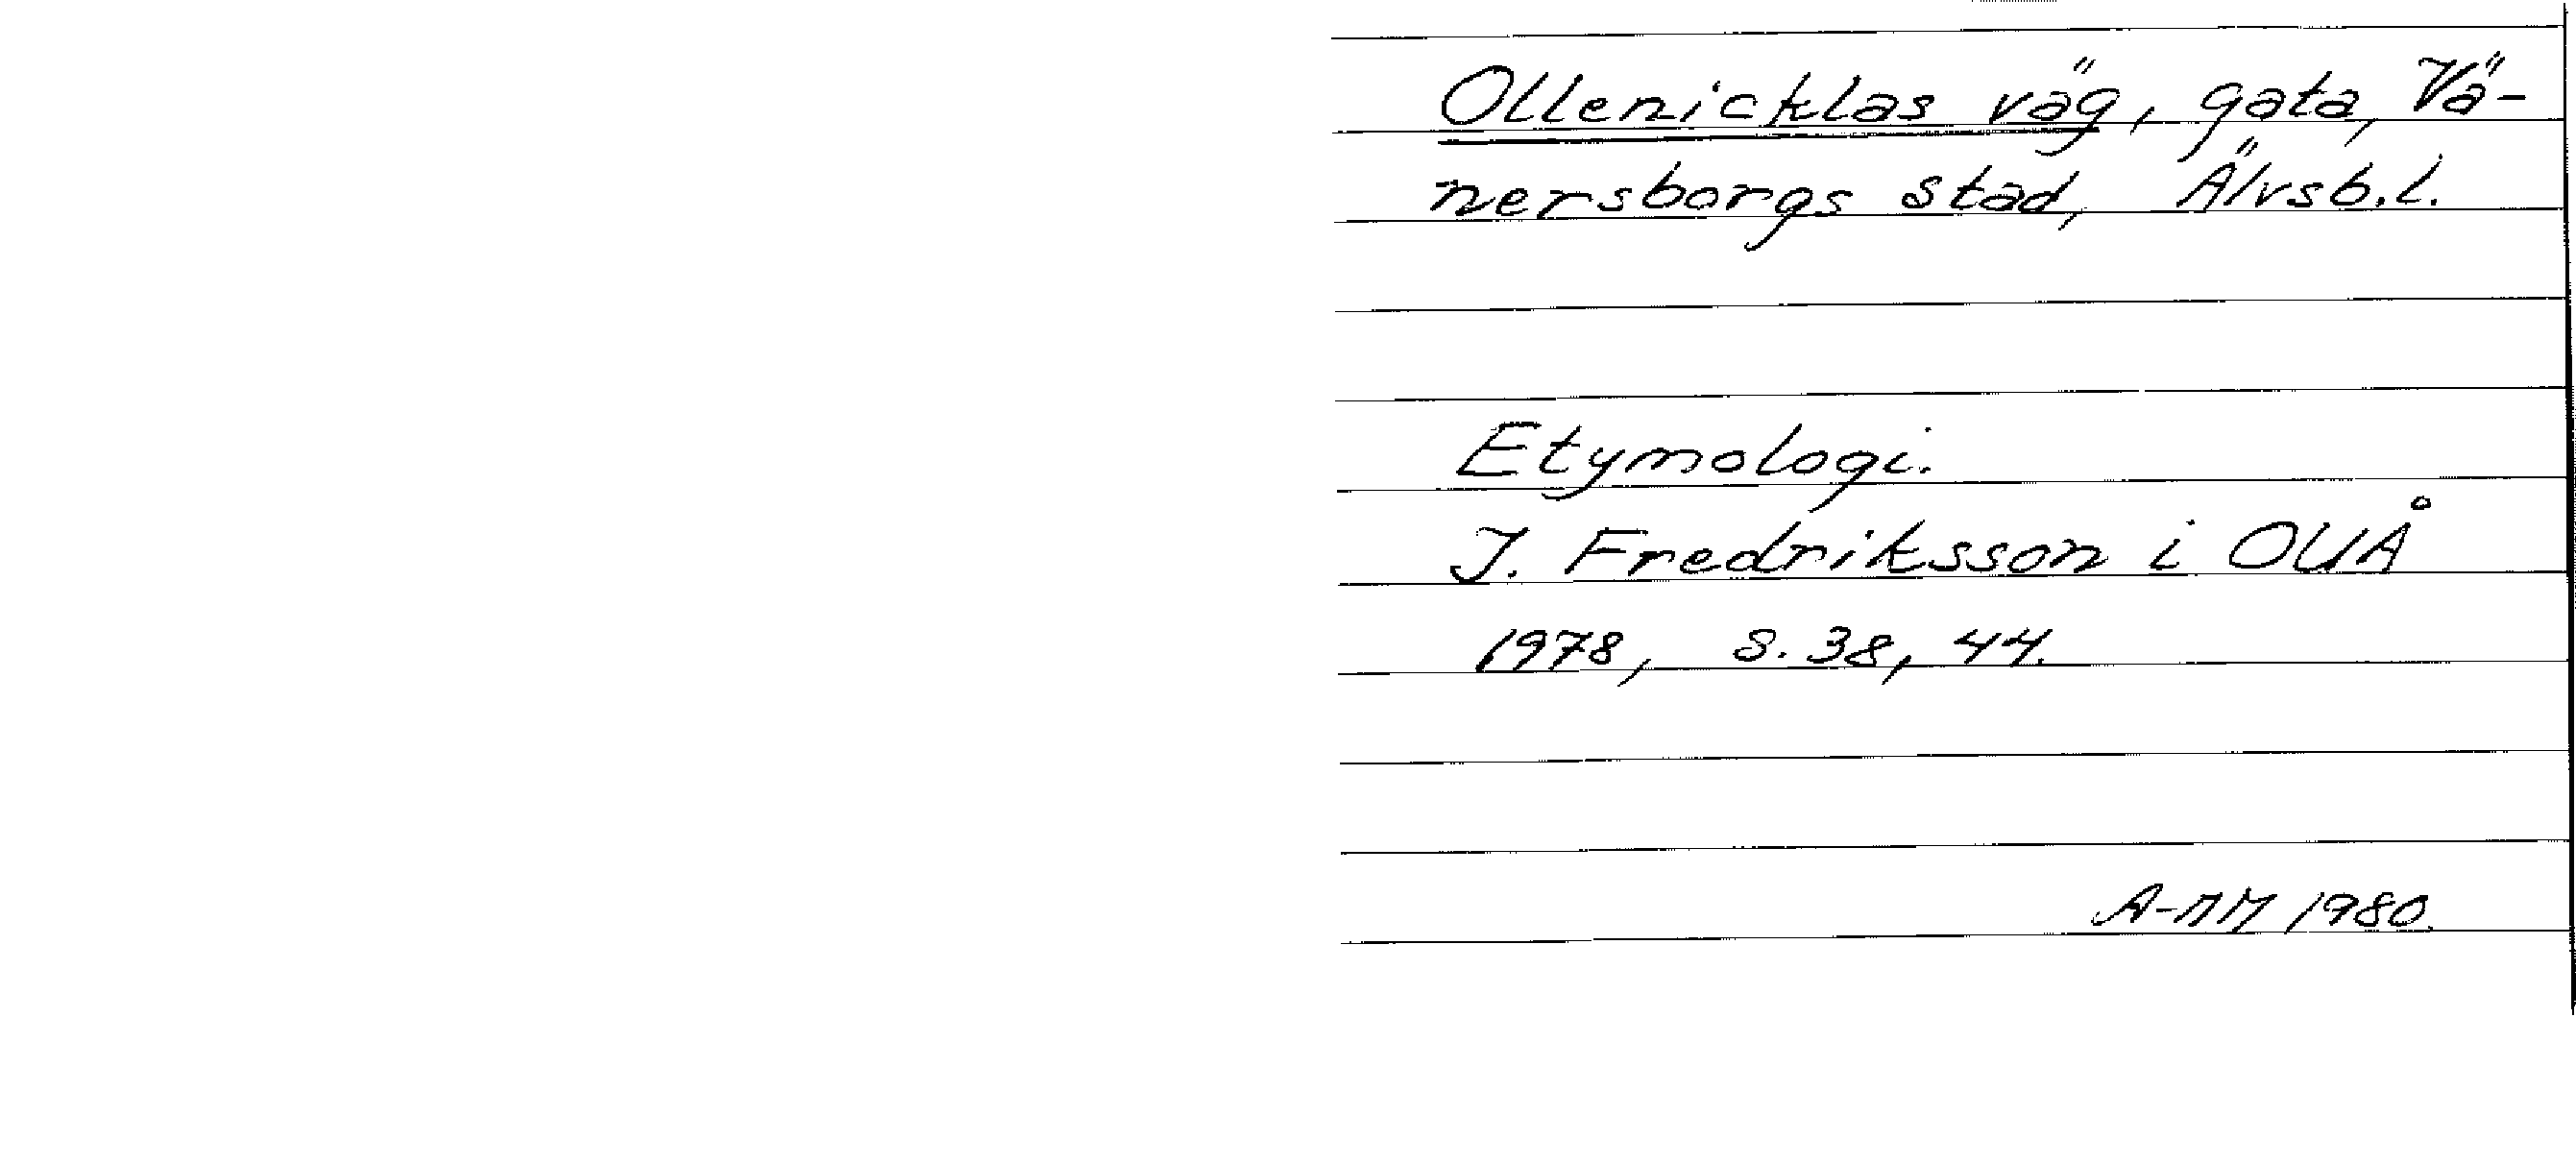 Ollenicklas väg, gata, Vä-
nersborgs stad, Älvsb.l.
Etymologi.
I. Fredriksson i OUÅ
1978, s. 38, 44.
A-MM 1980.